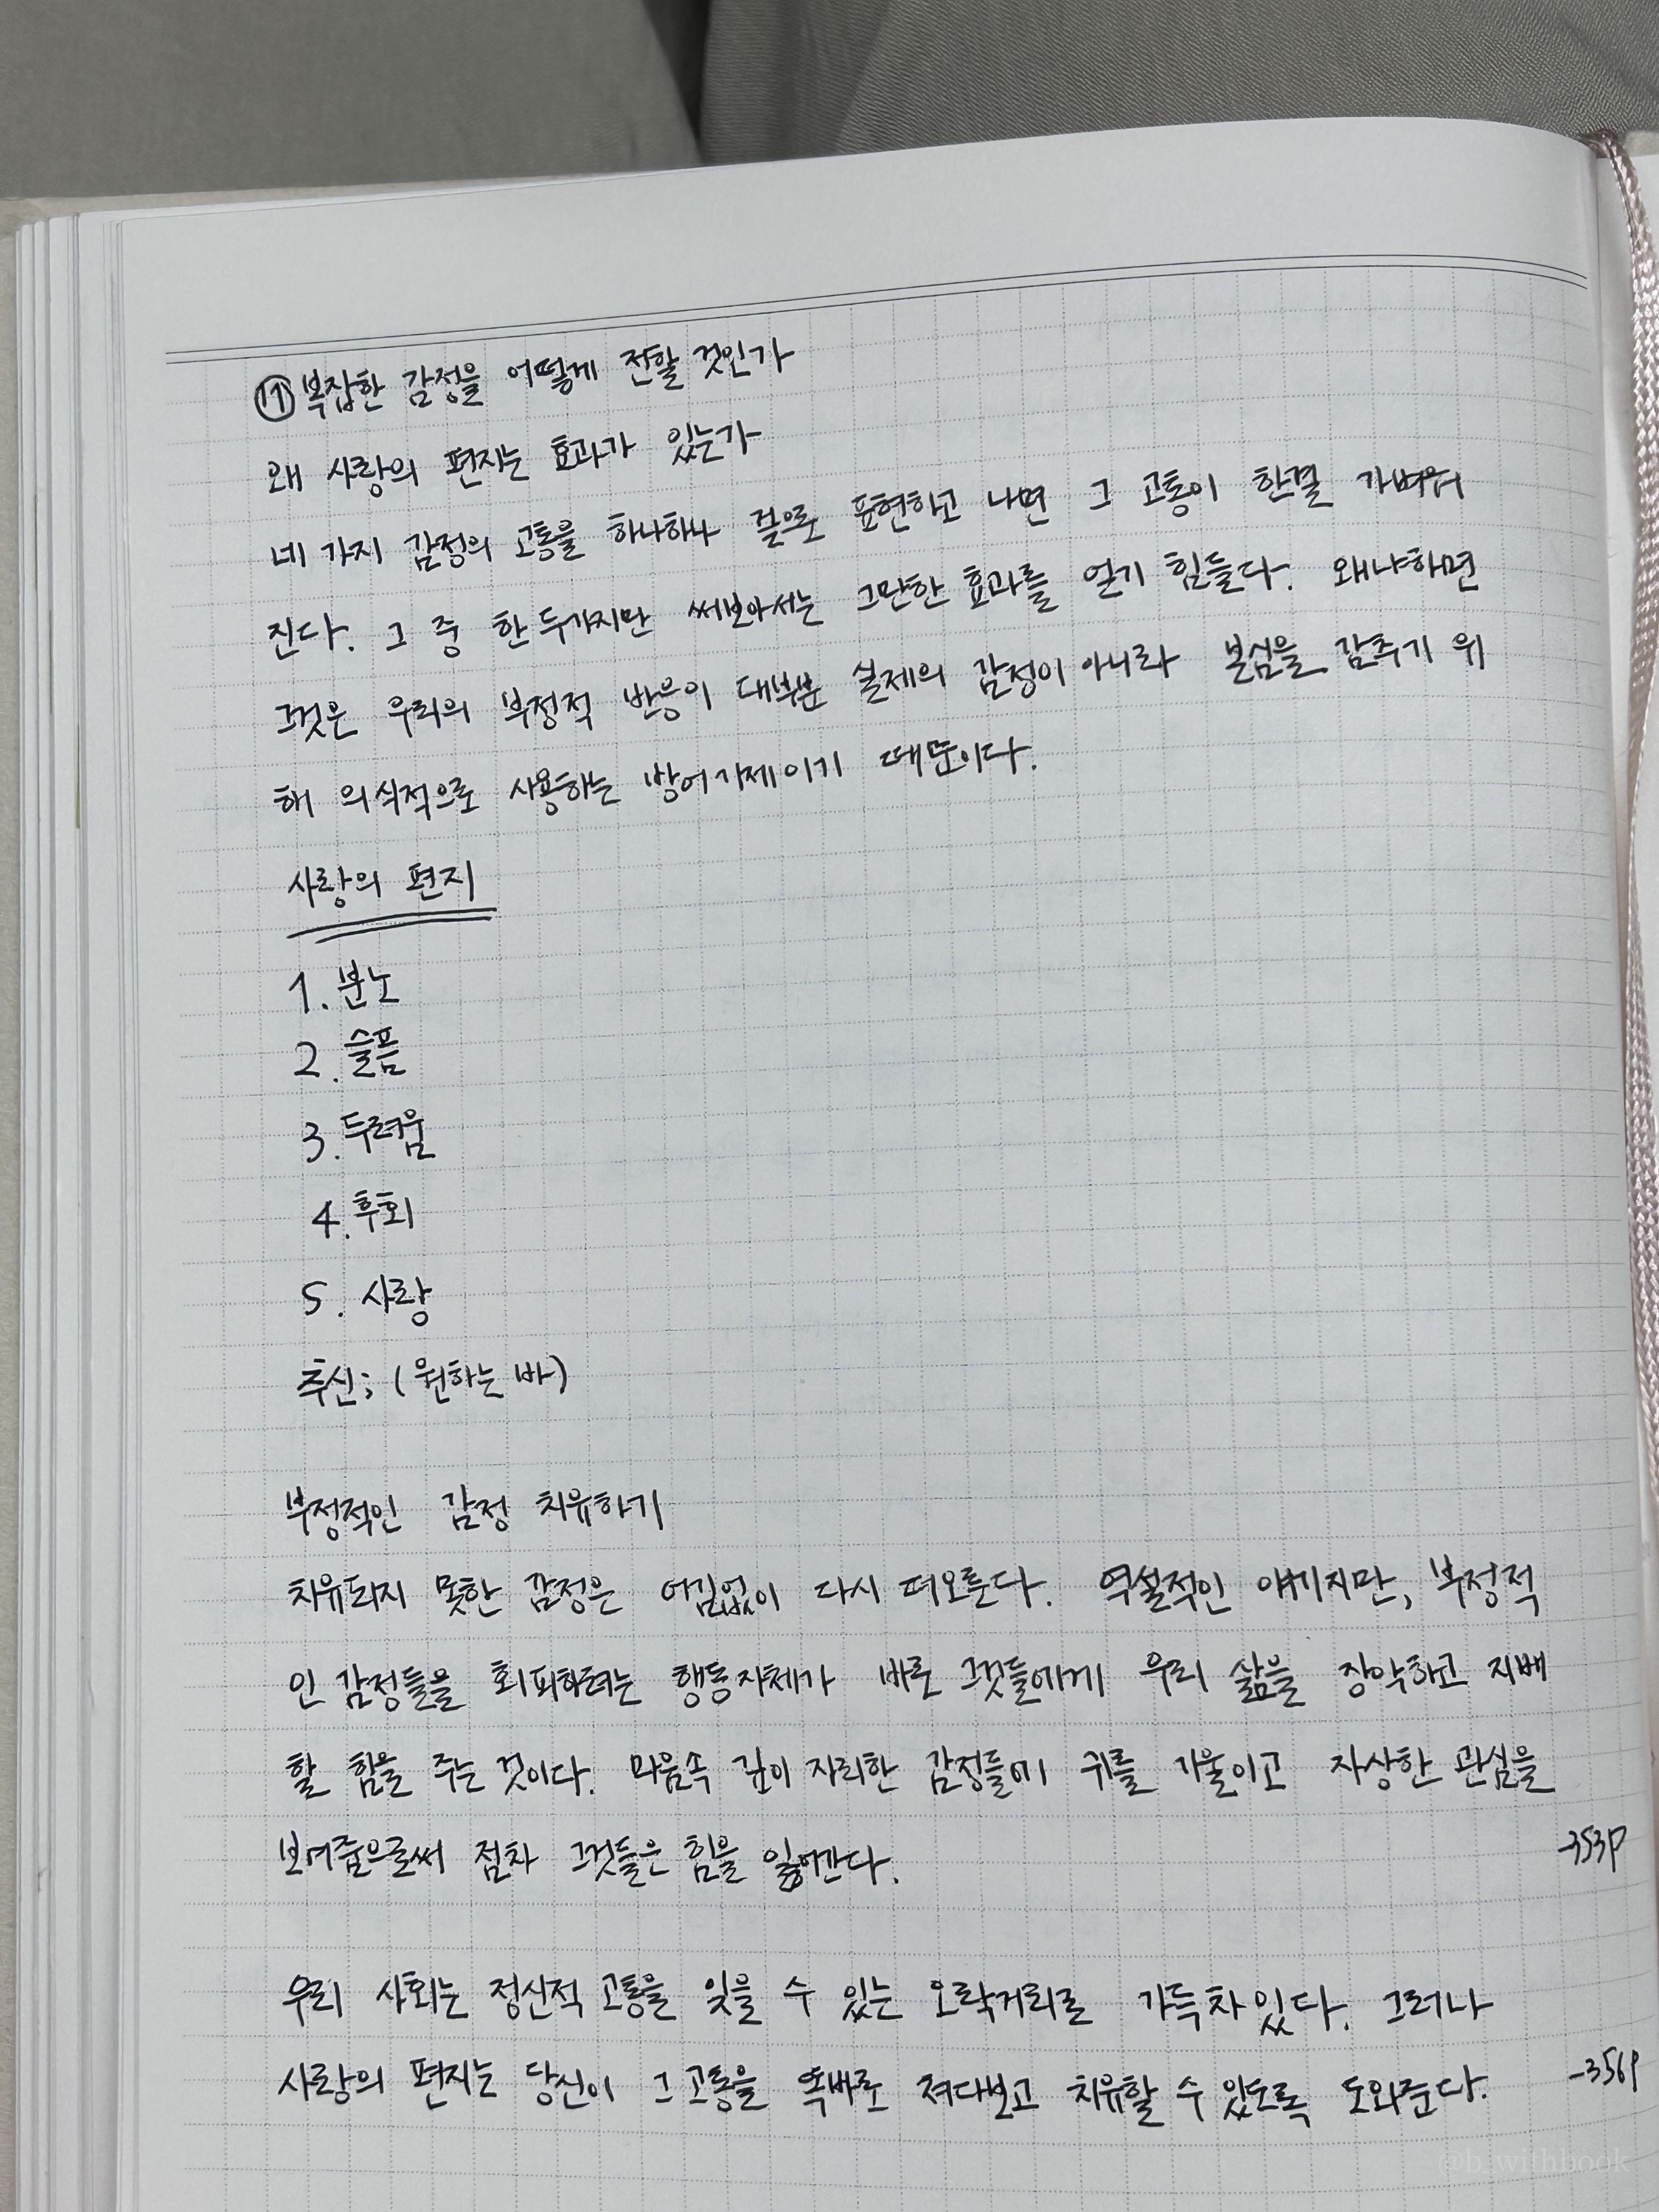 ⑪ 복잡한 감정을 어떻게 전할 것인가
왜 사랑의 편지는 효과가 있는가
네 가지 감정의 고통을 하나하나 글으로 표현하고 나면 그 고통이 한결 가벼워
진다. 그 중 한두가지만 써보아서는 그만한 효과를 얻기 힘들다. 왜냐하면
그것은 우리의 부정적 반응이 대부분 실제의 감정이 아니라 본심을 감추기 위
해 의식적으로 사용하는 방어기제이기 때문이다.
사랑의 편지
1. 분노
2. 슬픔
3. 두려움
4. 후회
5. 사랑
추신; (원하는 바)
부정적인 감정 치유하기
치유되지 못한 감정은 어김없이 다시 떠오른다. 역설적인 얘기지만, 부정적
인 감정들을 회피하려는 행동자체가 바로 그것들에게 우리 삶을 장악하고 지배
할 힘을 주는 것이다. 마음속 깊이 자리한 감정들에 귀를 기울이고 자상한 관심을
보여줌으로써 점차 그것들은 힘을 잃어간다.
-353p
우리 사회는 정신적 고통을 잊을 수 있는 오락거리로 가득차있다. 그러나
사랑의 편지는 당신이 그 고통을 똑바로 쳐다보고 치유할 수 있도록 도와준다.
-356p
@b_withbook